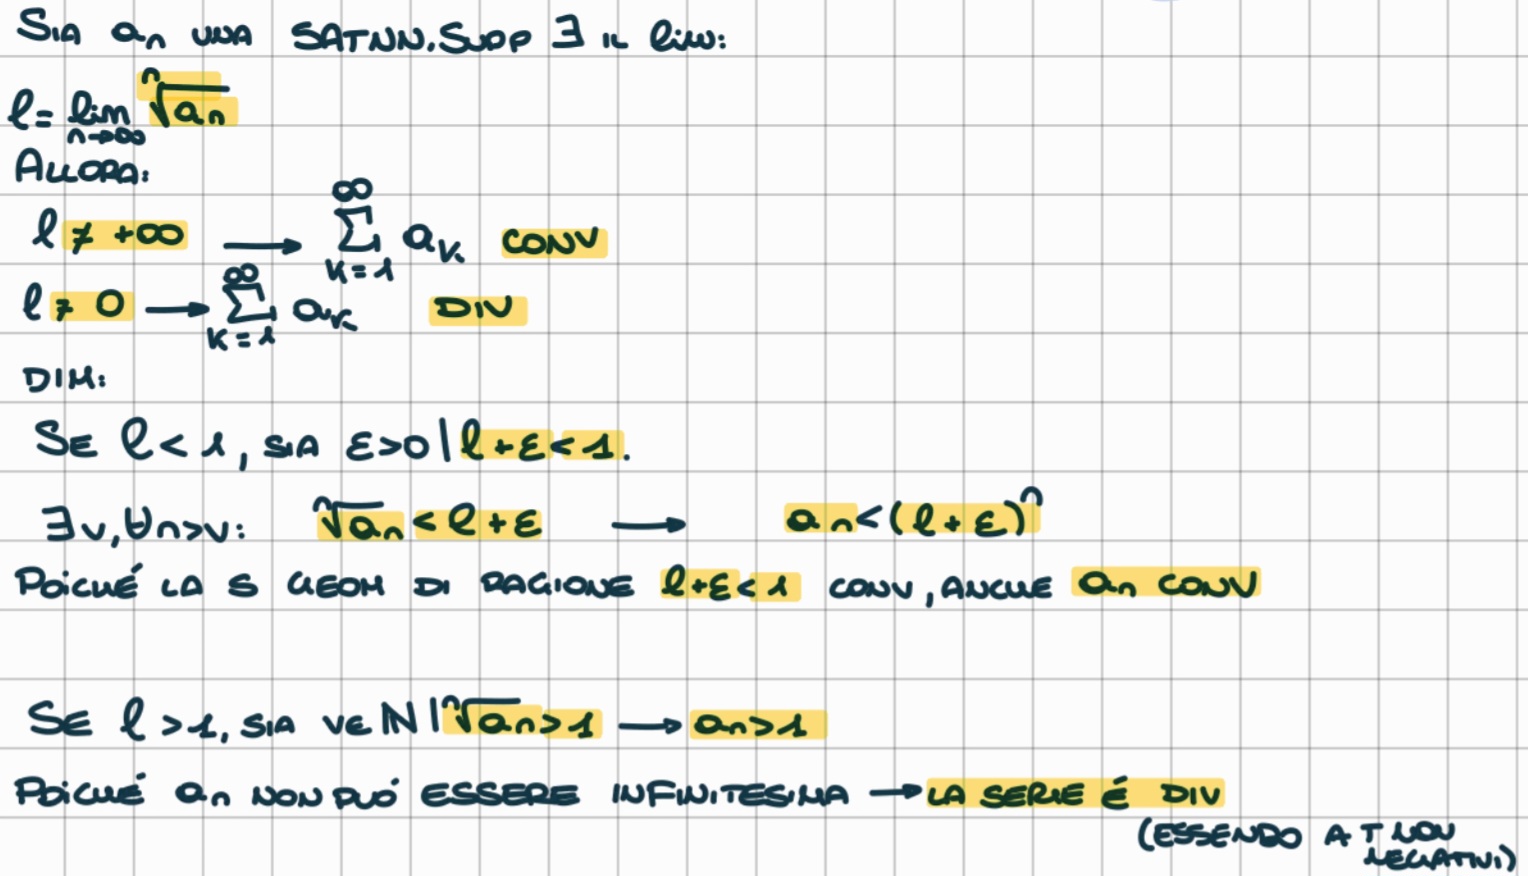 SIA an UNA SATNN. SUPP ∃ IL lim:
l = lim n→∞ ⁿ√an
ALLORA:
l ≠ +∞ → ∞ Σ k=1 ak CONV
l ≠ 0 → ∞ Σ k=1 ak DIV
DIM:
SE l < 1, SIA ε>0 | l+ε < 1.
∃ν, ∀n>ν: ⁿ√an < l+ε → an < (l+ε)ⁿ
POICHÉ LA S GEOM DI RAGIONE l+ε < 1 CONV, ANCHE an CONV
SE l > 1, SIA ν∈ℕ | ⁿ√an > 1 → an > 1
POICHÉ an NON PUÓ ESSERE INFINITESIMA → LA SERIE É DIV
(ESSENDO A T NON
NEGATIVI)